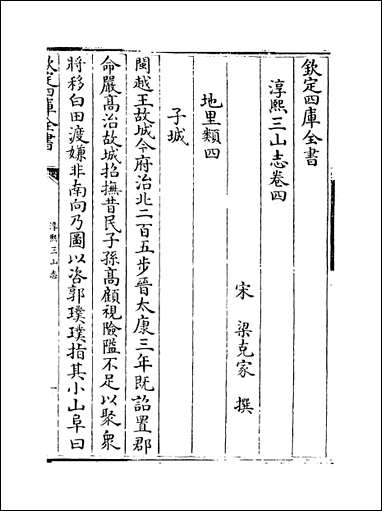 欽定四庫全書
淳熙三山志卷四
宋 梁克家 撰
地里類四
子城
閩越王故城今府治北二百五步晉太康三年既詔置郡
命嚴高治故城招撫昔民子孫高顧視險隘不足以聚衆
將移白田渡嫌非南向乃圖以咨郭璞璞指其小山阜曰
欽定四庫全書
淳熙三山志